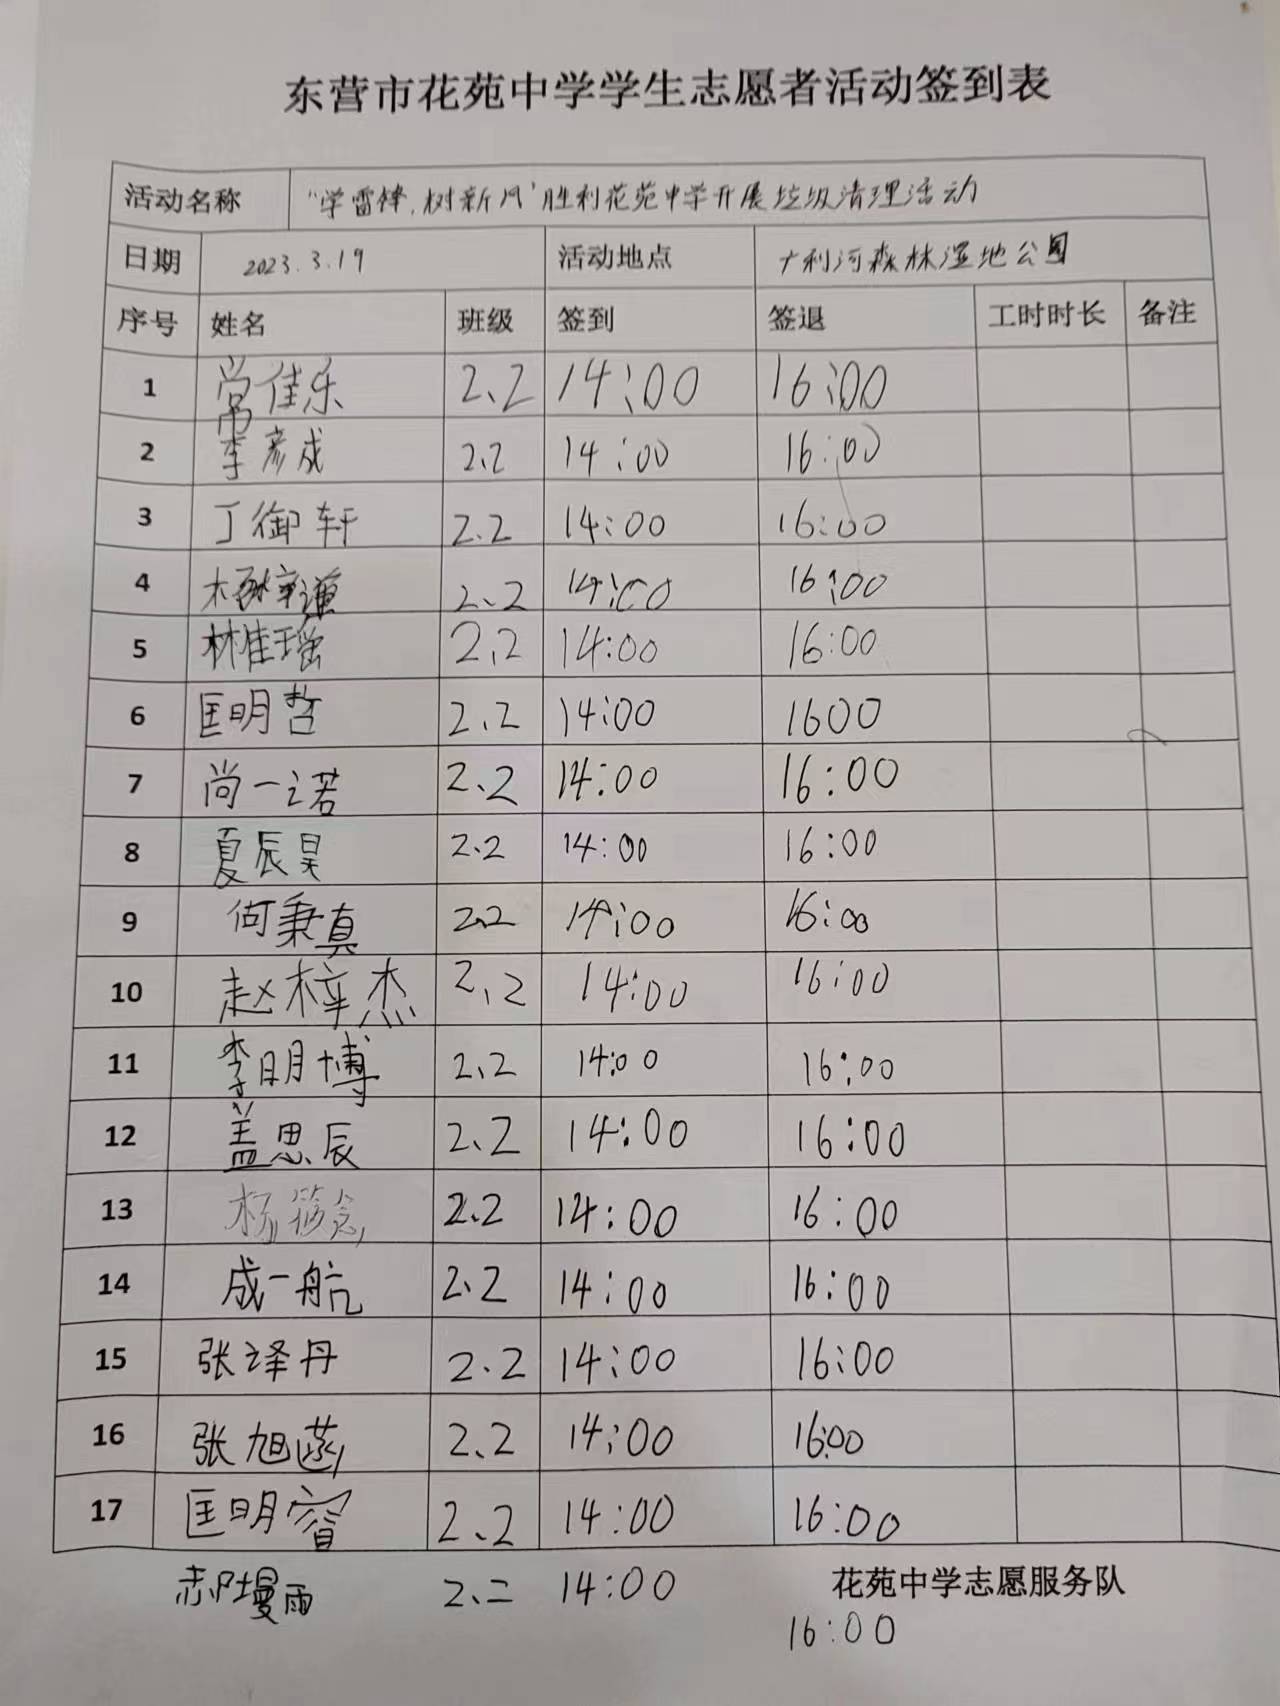 东营市花苑中学学生志愿者活动签到表
活动名称 “学雷锋,树新风”胜利花苑中学开展垃圾清理活动
日期 2023.3.19 活动地点 广利河森林湿地公园
序号 姓名 班级 签到 签退 工时时长 备注
1 常佳乐 2.2 14:00 16:00
2 李彦成 2.2 14:00 16:00
3 丁御轩 2.2 14:00 16:00
4 2.2 14:00 16:00
5 林佳瑶 2.2 14:00 16:00
6 匡明哲 2.2 14:00 1600
7 尚一诺 2.2 14:00 16:00
8 夏辰昊 2.2 14:00 16:00
9 何秉真 2.2 14:00 16:00
10 赵梓杰 2.2 14:00 16:00
11 李明博 2.2 14:00 16:00
12 盖思辰 2.2 14:00 16:00
13 2.2 14:00 16:00
14 成一航 2.2 14:00 16:00
15 张泽丹 2.2 14:00 16:00
16 张旭菡 2.2 14:00 16:00
17 匡明睿 2.2 14:00 16:00
郝墁雨 2.二 14:00 花苑中学志愿服务队
16:00